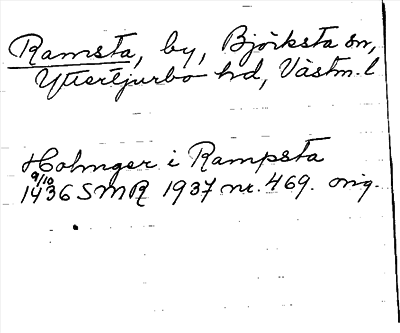 Ramsta, by, Björksta sn,
Yttertjurbo hd, Västm. l
Holmger i Rampsta
9/10
1436 SMR 1937 nr. 469. orig.